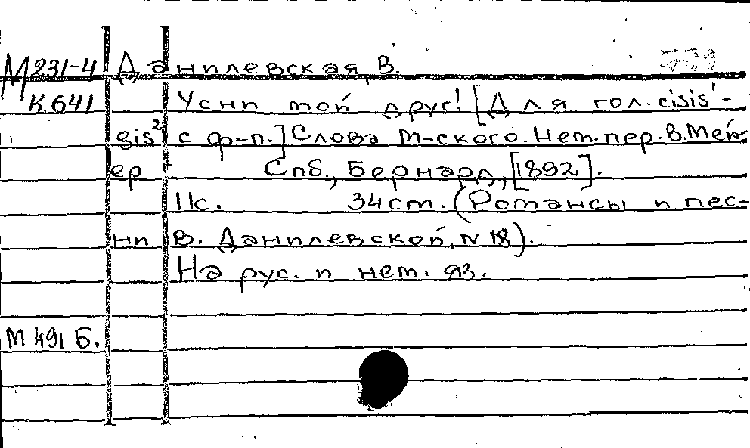 М231-4 Данилевская, В.
К.641 Усни мой друг! [Для гол. cisis'-
gis² с ф-п.] Слова М-ского. Нем. пер. В. Мей-
ер Спб., Бернард, [1892].
1к. 34 cm. (Романсы и пес-
ни В. Данилевской, N 18).
На рус. и нем. яз.
М 491 Б.